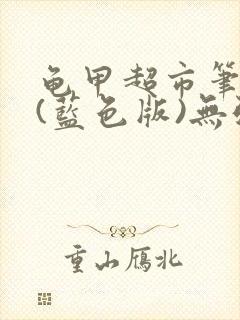 龟甲超市筆
(藍色版)無
重山雁北